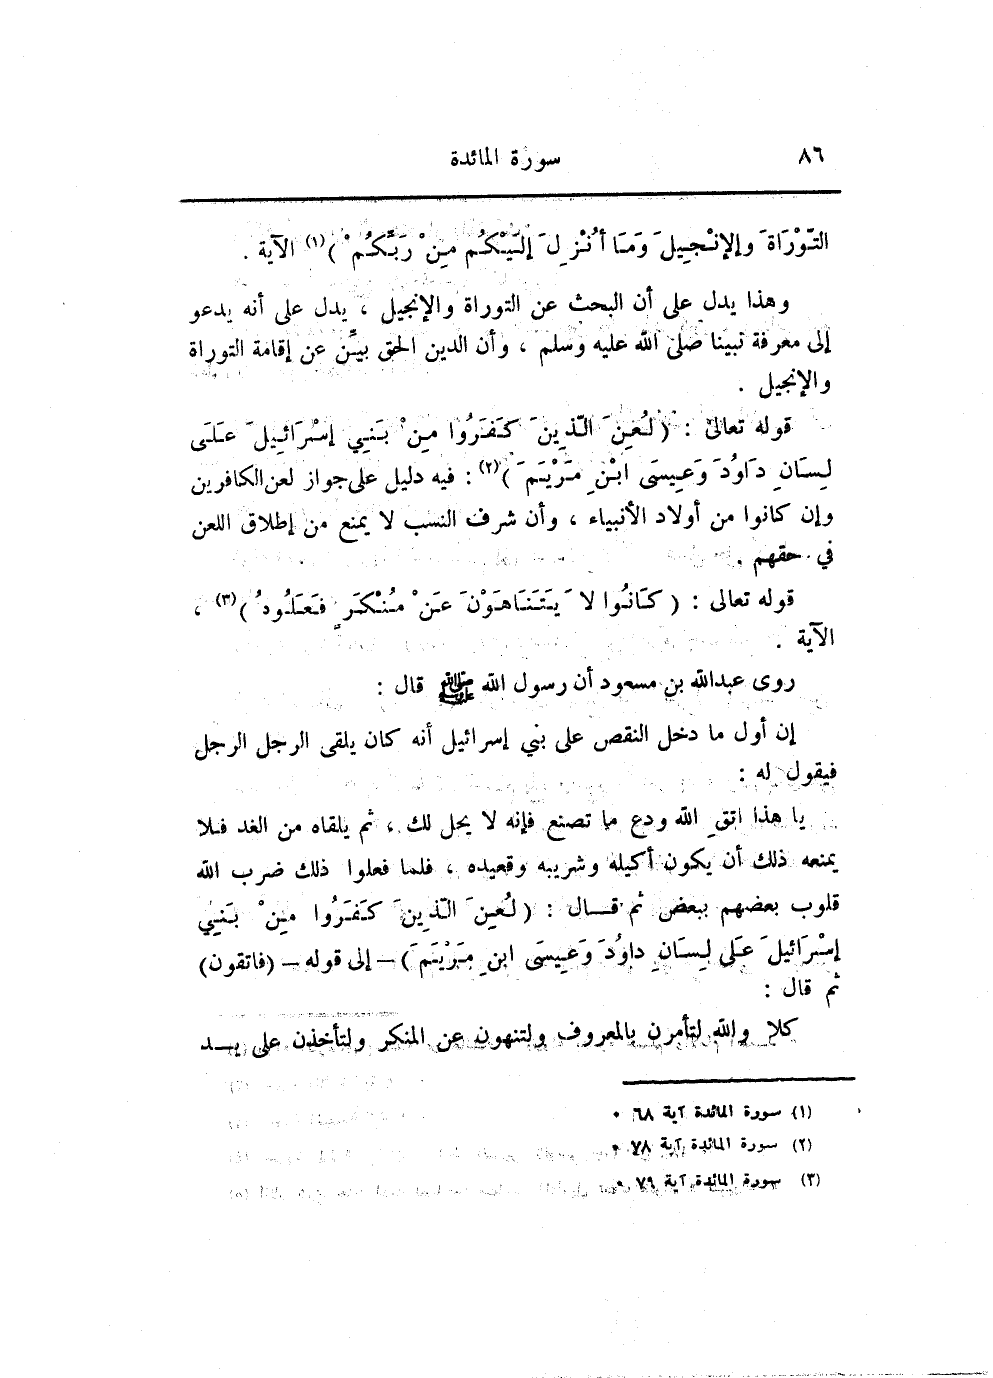 ٨٦
سورة المائدة
التَّوْرَاةَ وَالإِنْجِيلَ وَمَا أُنْزِلَ إِلَيْكُم مِنْ رَبِّكُمْ )(١) الآية .
وهذا يدل على أن البحث عن التوراة والإنجيل ، يدل على أنه يدعو
إلى معرفة نبينا صلى الله عليه وسلم ، وأن الدين الحق بيِّن عن إقامة التوراة
والإنجيل .
قوله تعالى : ( لُعِنَ الَّذِينَ كَفَرُوا مِنْ بَنِي إِسْرَائِيلَ عَلَى
لِسَانِ دَاوُدَ وَعِيسَى ابْنِ مَرْيَمَ )(٢) : فيه دليل على جواز لعن الكافرين
وإن كانوا من أولاد الأنبياء ، وأن شرف النسب لا يمنع من إطلاق اللعن
في حقهم .
قوله تعالى : ( كَانُوا لاَ يَتَنَاهَوْنَ عَنْ مُنْكَرٍ فَعَلُوهُ )(٣) ،
الآية .
روى عبدالله بن مسعود أن رسول الله ﷺ قال :
إن أول ما دخل النقص على بني إسرائيل أنه كان يلقى الرجل الرجل
فيقول له :
يا هذا اتقِ الله ودع ما تصنع فإنه لا يحل لك ، ثم يلقاه من الغد فلا
يمنعه ذلك أن يكون أكيله وشريبه وقعيده ، فلما فعلوا ذلك ضرب الله
قلوب بعضهم ببعض ثم قال : ( لُعِنَ الَّذِينَ كَفَرُوا مِنْ بَنِي
إِسْرَائِيلَ عَلَى لِسَانِ داوُدَ وَعِيسَى ابنِ مَرْيَمَ ) – إلى قوله – (فاتقون)
ثم قال :
كلا والله لتأمرن بالمعروف ولتنهون عن المنكر ولتأخذن على يد
(١) سورة المائدة آية ٦٨ .
(٢) سورة المائدة آية ٧٨ .
(٣) سورة المائدة آية ٧٩ .